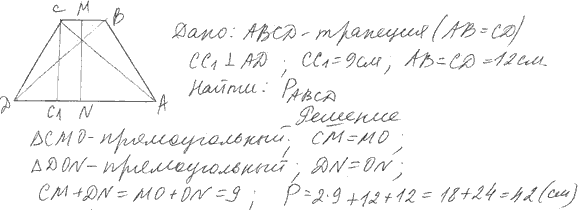 C M B
D C₁ N A
Дано: ABCD - трапеция (AB = CD)
CC₁ ⊥ AD ; CC₁ = 9см, AB = CD = 12см
Найти: P_ABCD
Решение
ΔCMO - прямоугольный; CM = MO;
ΔDON - прямоугольный; DN = ON;
CM + DN = MO + ON = 9 ; P = 2·9 + 12 + 12 = 18 + 24 = 42 (см)